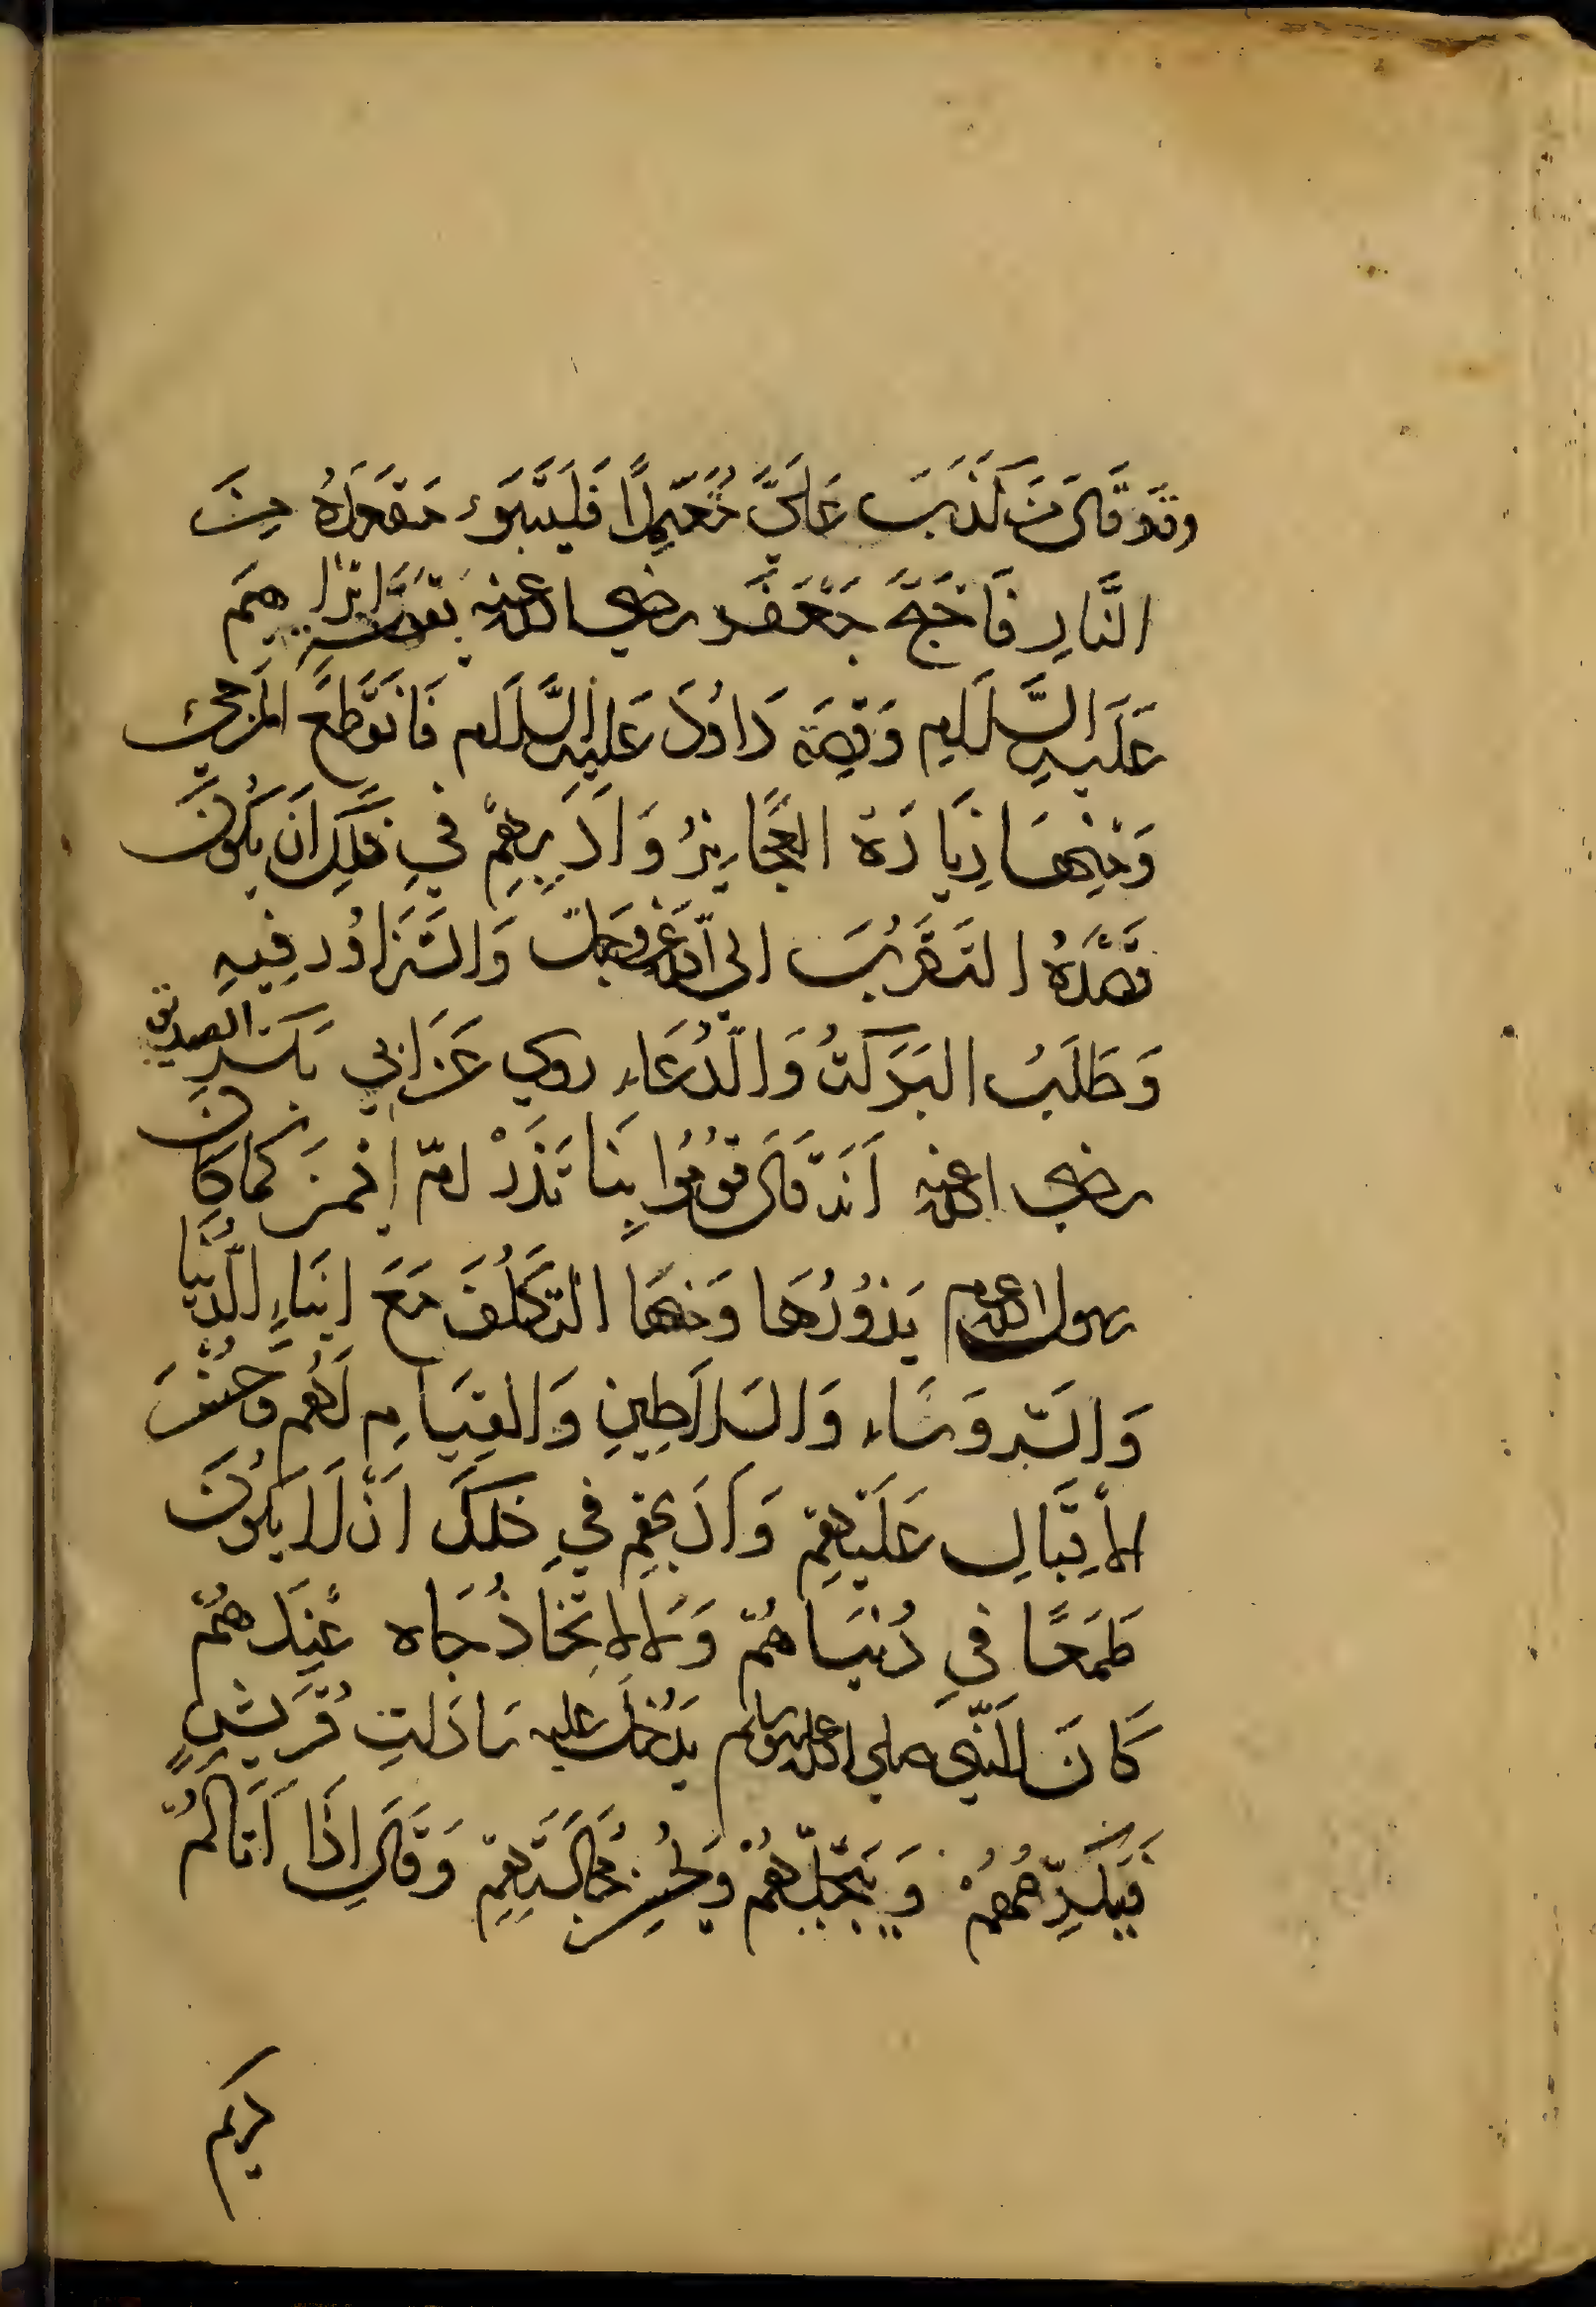 وقد قال من كذب علي متعمدا فليتبوء مقعده من
النار فاحج جعفر رضي الله عنه بقصة ابراهيم
عليه السلام وقصة داود عليه السلام فانقطع المرجئ
ومنها زيارة العجايز وادبهم في ذلك ان يكون
قصده التقرب الي الله عز وجل والتزاور فيه
وطلب البركة والدعاء روي عن ابي بكر الصديق
رضي الله عنه انه قال قوموا بنا نزر ام ايمن كما كان
رسول الله عم يزورها ومنها التكلف مع ابناء الدنيا
والروساء والسلاطين والقيام لهم وحسن
الاقبال عليهم وادبهم في ذلك ان لا يكون
طمعا في دنياهم ولا لاتخاذ جاه عندهم
كان النبي صلي الله عليه وسلم يدخل عليه سادات قريش
فيكرمهم ويبجلهم ويحسن مجالستهم وقال اذا اتاكم
كريم